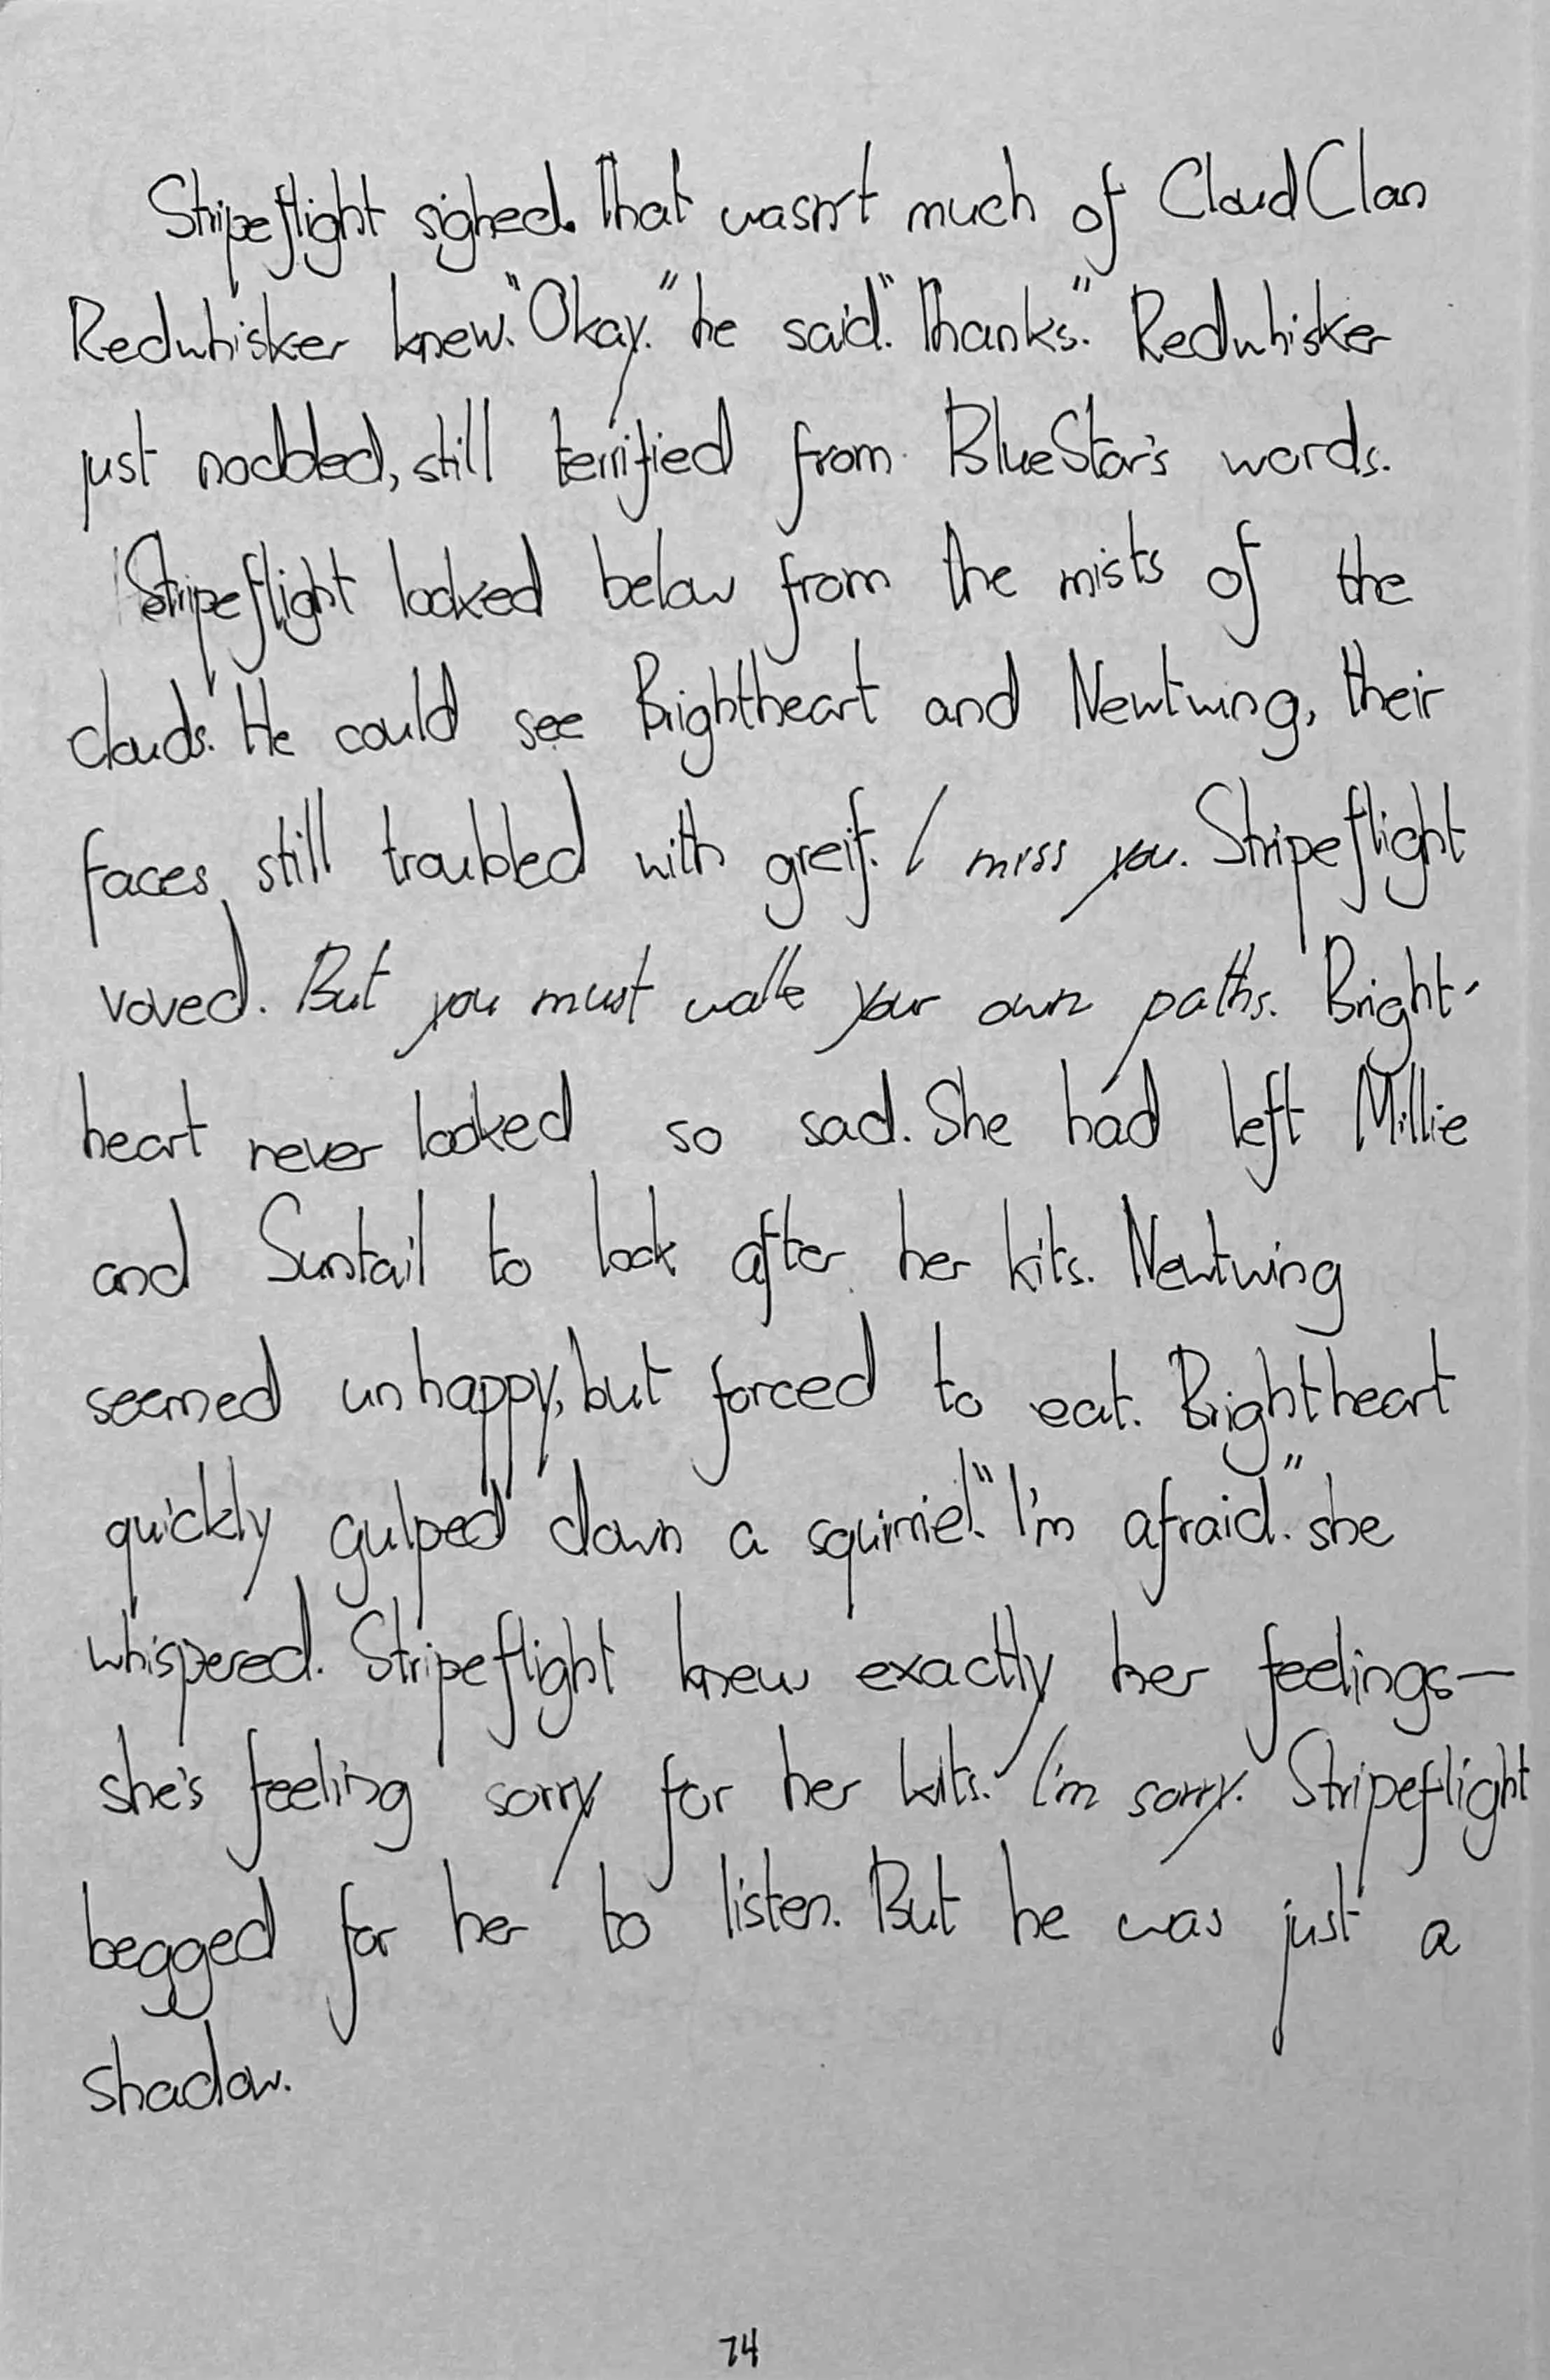 Stripeflight sighed. That wasn't much of CloudClan
Redwhisker knew. "Okay." he said. "Thanks." Redwhisker
just nodded, still terrified from BlueStar's words.
Stripeflight looked below from the mists of the
clouds. He could see Brightheart and Newtwing, their
faces still troubled with greif. I miss you. Stripeflight
voved. But you must walk your own paths. Bright-
heart never looked so sad. She had left Millie
and Suntail to look after her kits. Newtwing
seemed unhappy, but forced to eat. Brightheart
quickly gulped down a squirriel. "I'm afraid." she
whispered. Stripeflight knew exactly her feelings—
she's feeling sorry for her kits. I'm sorry. Stripeflight
begged for her to listen. But he was just a
shadow.
74